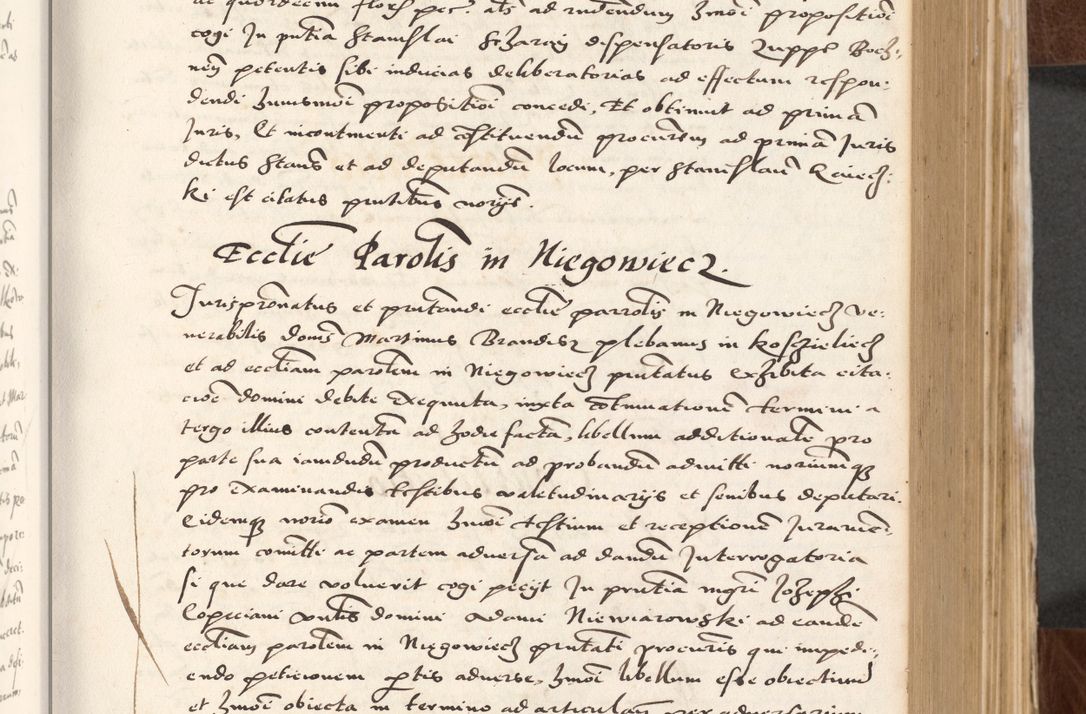 cogi In pntia Stanislai dispensatoris Zuppe Boch:
nen petentis sibi inducias deliberatorias ad effectum respon:
dendi huiusmoi propositioi concedi, Et obtinuit ad primā
Iuris, Et incontinenti ad cōstituendū procurem ad primā Iuris
dictus Stans et ad deputandū locum, per Stanislaū
ki est citatus pntibus norijs.
Ecclie Parolis in Niegowiecz.
Jurispronatus et pntandi ecclie parrolis in Niegowiecz Ve:
nerabilis doms Martinus Brandisz plebanus in Kosczieliecz
et ad eccliam parolem in Niegowiecz pntatus exhibita cita:
cioe domini debite exequuta, iuxta cōtinuationem termini a
tergo illius contentā ad hodie factā, libellum additionale pro
parte sua iamdudū productū ad probandū admitti noriumqз
pro examinandis testibus valetudinarijs et senibus deputari.
Eidemqз norio examen hmoi testium et receptionem Iuramē:
torum comitti ac partem adversā ad dandū Interrogatoria
si que dare voluerit cogi pecijt In pntia mgri Jozephi
Copciani domini Adami Niewiarowski ad eandē
eccliam parolem in Niegowiecz pntati procuris qui impedi:
endo peticionem prtis adverse, hmoi libellum esse obiectium
et hmoi obiecta in termino ad articulandū per adversarium